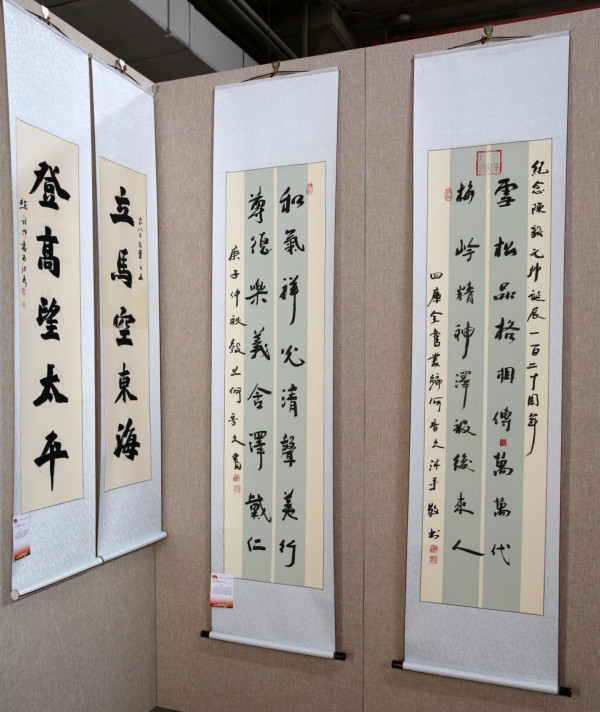 紀念陳毅元帅誕辰一百二十周年
雪松品格相傳萬萬代
梅岭精神澤被後来人
四庫全書叢编何香久沐手敬书
和氣祥光清聲美行
尊德樂義含澤戴仁
庚子仲秋穀旦何香久書
立馬空東海
登高望太平